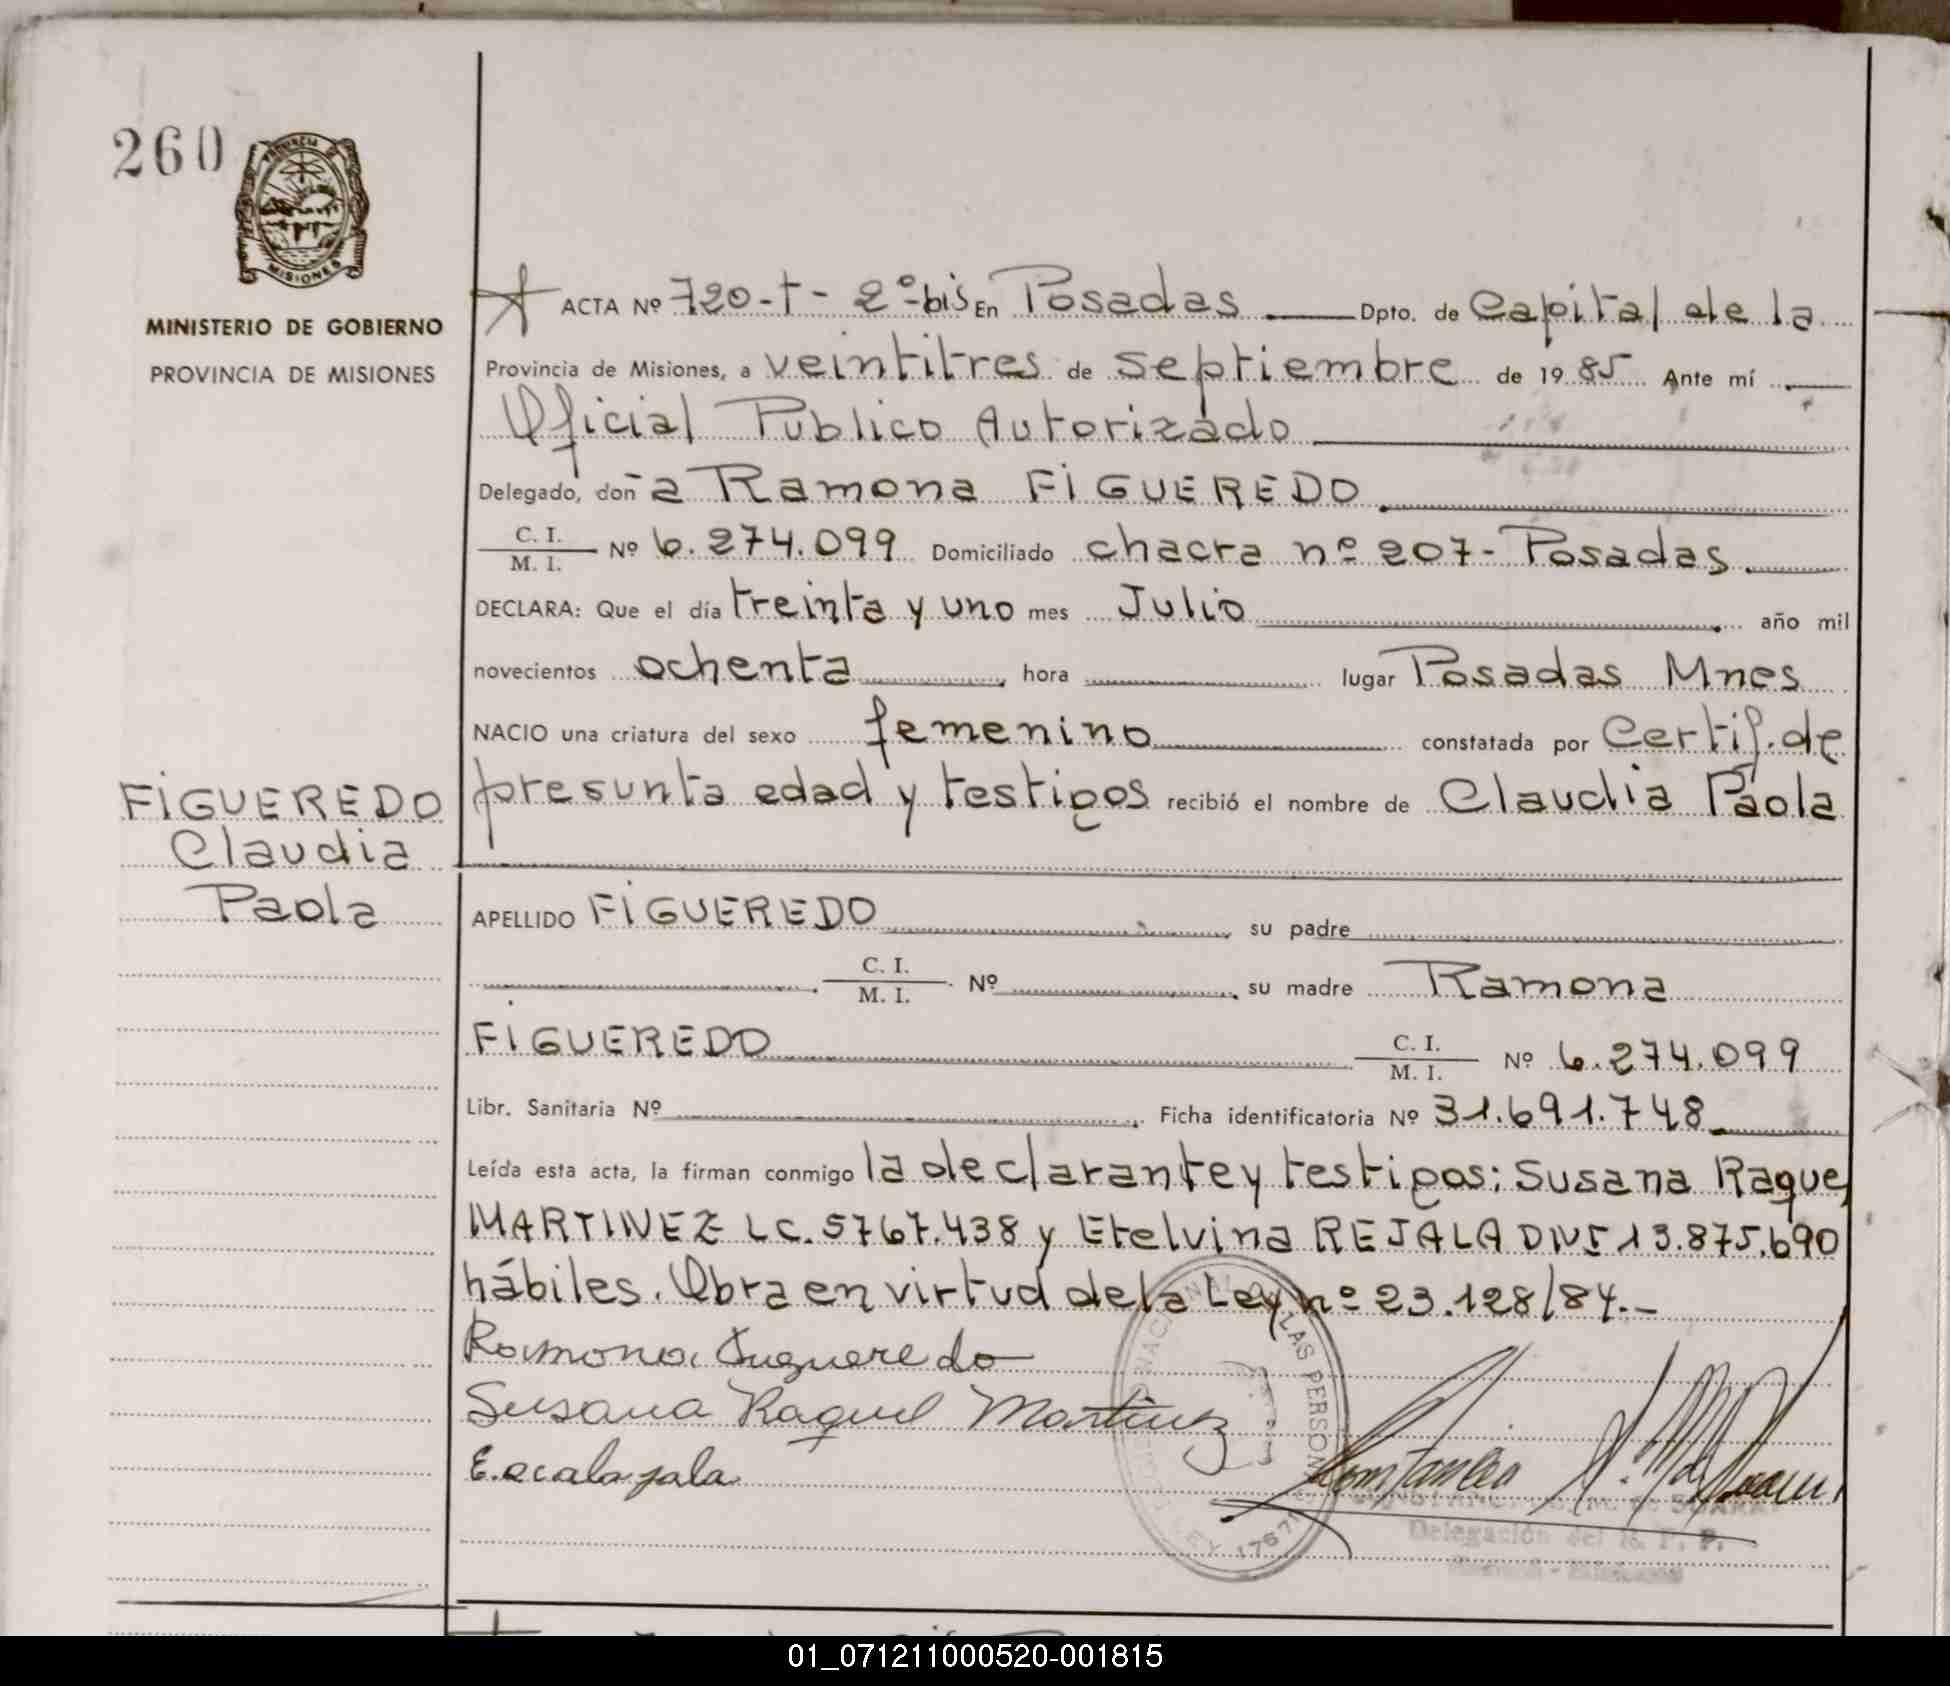 260
PROVINCIA DE
MISIONES
MINISTERIO DE GOBIERNO
PROVINCIA DE MISIONES
FIGUEREDO
Claudia
Paola
ACTA Nº 720-t- 2º bis En Posadas Dpto. de Capital de la
Provincia de Misiones, a veintitres de septiembre de 19 85 Ante mí
Oficial Publico Autorizado
Delegado, doña Ramona FIGUEREDO
C. I.
M. I. Nº 6.274.099 Domiciliado chacra nº 207- Posadas
DECLARA: Que el día treinta y uno mes Julio año mil
novecientos ochenta hora lugar Posadas Mnes
NACIO una criatura del sexo femenino constatada por Certif. de
presunta edad y testigos recibió el nombre de Claudia Paola
APELLIDO FIGUEREDO su padre
C. I.
M. I. Nº su madre Ramona
FIGUEREDO C. I.
M. I. Nº 6.274.099
Libr. Sanitaria Nº Ficha identificatoria Nº 31.691.748
Leída esta acta, la firman conmigo la declarante y testigos: Susana Raquel
MARTINEZ LC. 5767.438 y Etelvina REJALA DNI 13.875.690
hábiles. Obra en virtud de la Ley nº 23.128/84.-
Ramona Figueredo
Susana Raquel Martinez
LAS PERSON
LEY 1767
Delegación del R. P. P.
01_071211000520-001815